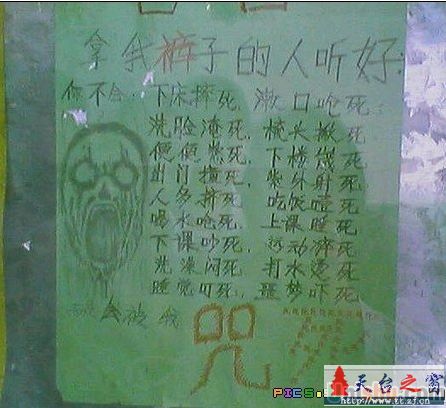 拿我裤子的人听好:
你不会: 下床摔死, 漱口呛死,
洗脸淹死, 梳头扳死
便便熬死, 下楼崴死
出门撞死, 紫外射死
人多挤死, 吃饭噎死
喝水呛死, 上课睡死
下课吵死, 运动猝死
洗澡闷死, 打水烫死
睡觉叮死, 噩梦吓死
会被我
咒
死
天台之窗
http://www.tt.zj.cn
PICS